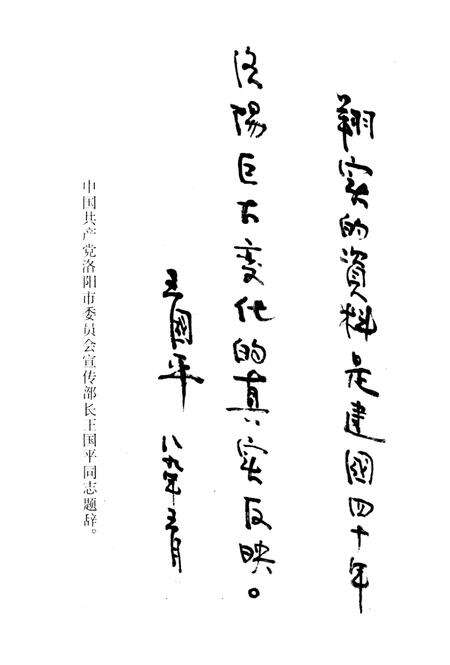 翔实的資料是建國四十年
洛陽巨大变化的真实反映。
王國平 八九年五月
中国共产党洛阳市委员会宣传部长王国平同志题辞。